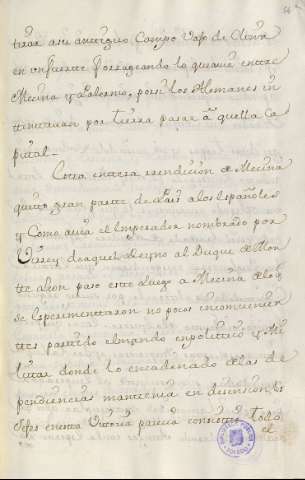 tirar a su antiguo Campo vajo de Clava
en un fuerte forrageando lo que avia entre
Mecina y Palermo, por si los Alemanes in
tentavan por tierra pasar à quella Ca
pital.
Esta entera rendicion de Mecina
quitò gran parte de Pais a los Españoles
y Como avia el Emperador nombrado por
Virrey de aquel Reyno al Duque de Mon
te aleon paso este luego a Mecina de lo q.
se esperimentaron no pocos inconvenien
tes partido el mando en politico y Mi
litar donde lo encadenado de las de
pendiencias mantenia en disension los
Jefes en esta Victoria parecia consistir todo
el